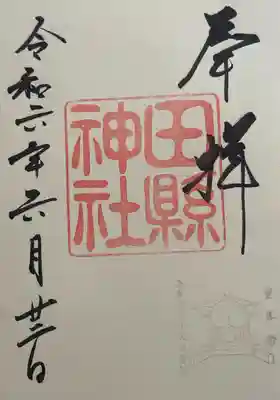 奉拝
田縣
神社
令和六年六月廿三日